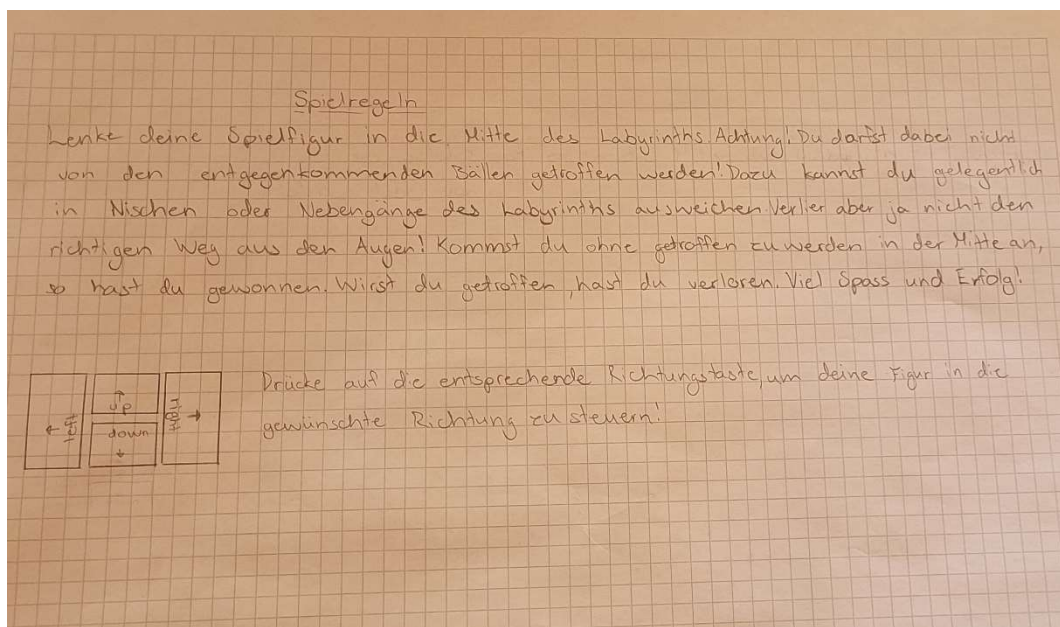 Spielregeln
Lenke deine Spielfigur in die Mitte des Labyrinths. Achtung! Du darfst dabei nicht
von den entgegenkommenden Bällen getroffen werden! Dazu kannst du gelegentlich
in Nischen oder Nebengänge des Labyrinths ausweichen. Verlier aber ja nicht den
richtigen Weg aus den Augen! Kommst du ohne getroffen zu werden in der Mitte an,
so hast du gewonnen. Wirst du getroffen, hast du verloren. Viel Spass und Erfolg!
Drücke auf die entsprechende Richtungstaste, um deine Figur in die
gewünschte Richtung zu steuern!
← left
↑
up
down
↓
right →